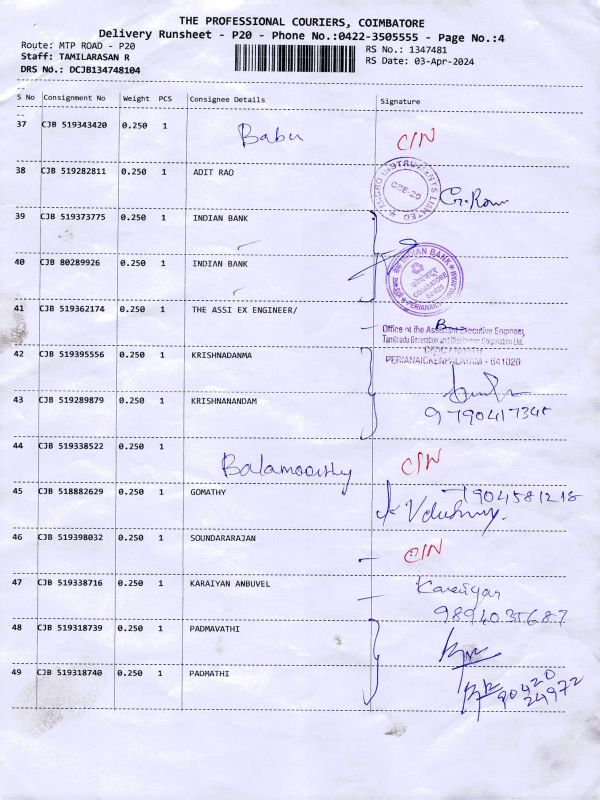 THE PROFESSIONAL COURIERS, COIMBATORE
Delivery Runsheet - P20 - Phone No.:0422-3505555 - Page No.:4
Route: MTP ROAD - P20
RS No.: 1347481
Staff: TAMILARASAN R
RS Date: 03-Apr-2024
DRS No.: DCJB134748104
S No Consignment No Weight PCS Consignee Details Signature
37 CJB 519343420 0.250 1 Babu C/N
38 CJB 519282811 0.250 1 ADIT RAO
MICRO INSTRUMENTS LIMITED
CBE-20
39 CJB 519373775 0.250 1 INDIAN BANK
40 CJB 80289926 0.250 1 INDIAN BANK
INDIAN BANK
COIMBATORE
641020
PERIANAICKENPALAYAM
41 CJB 519362174 0.250 1 THE ASSI EX ENGINEER/
Office of the Assistant Executive Engineer,
Tamilnadu Generation and Distribution Corporation Ltd.
PERIANAICKENPALAYAM - 641020
42 CJB 519395556 0.250 1 KRISHNADANMA
43 CJB 519289879 0.250 1 KRISHNANANDAM
9790417345
44 CJB 519338522 0.250 1 Balamoorthy C/N
45 CJB 518882629 0.250 1 GOMATHY
7904581218
46 CJB 519398032 0.250 1 SOUNDARARAJAN C/N
47 CJB 519338716 0.250 1 KARAIYAN ANBUVEL Karaiyan
9894035687
48 CJB 519318739 0.250 1 PADMAVATHI
49 CJB 519318740 0.250 1 PADMATHI
90420
24972